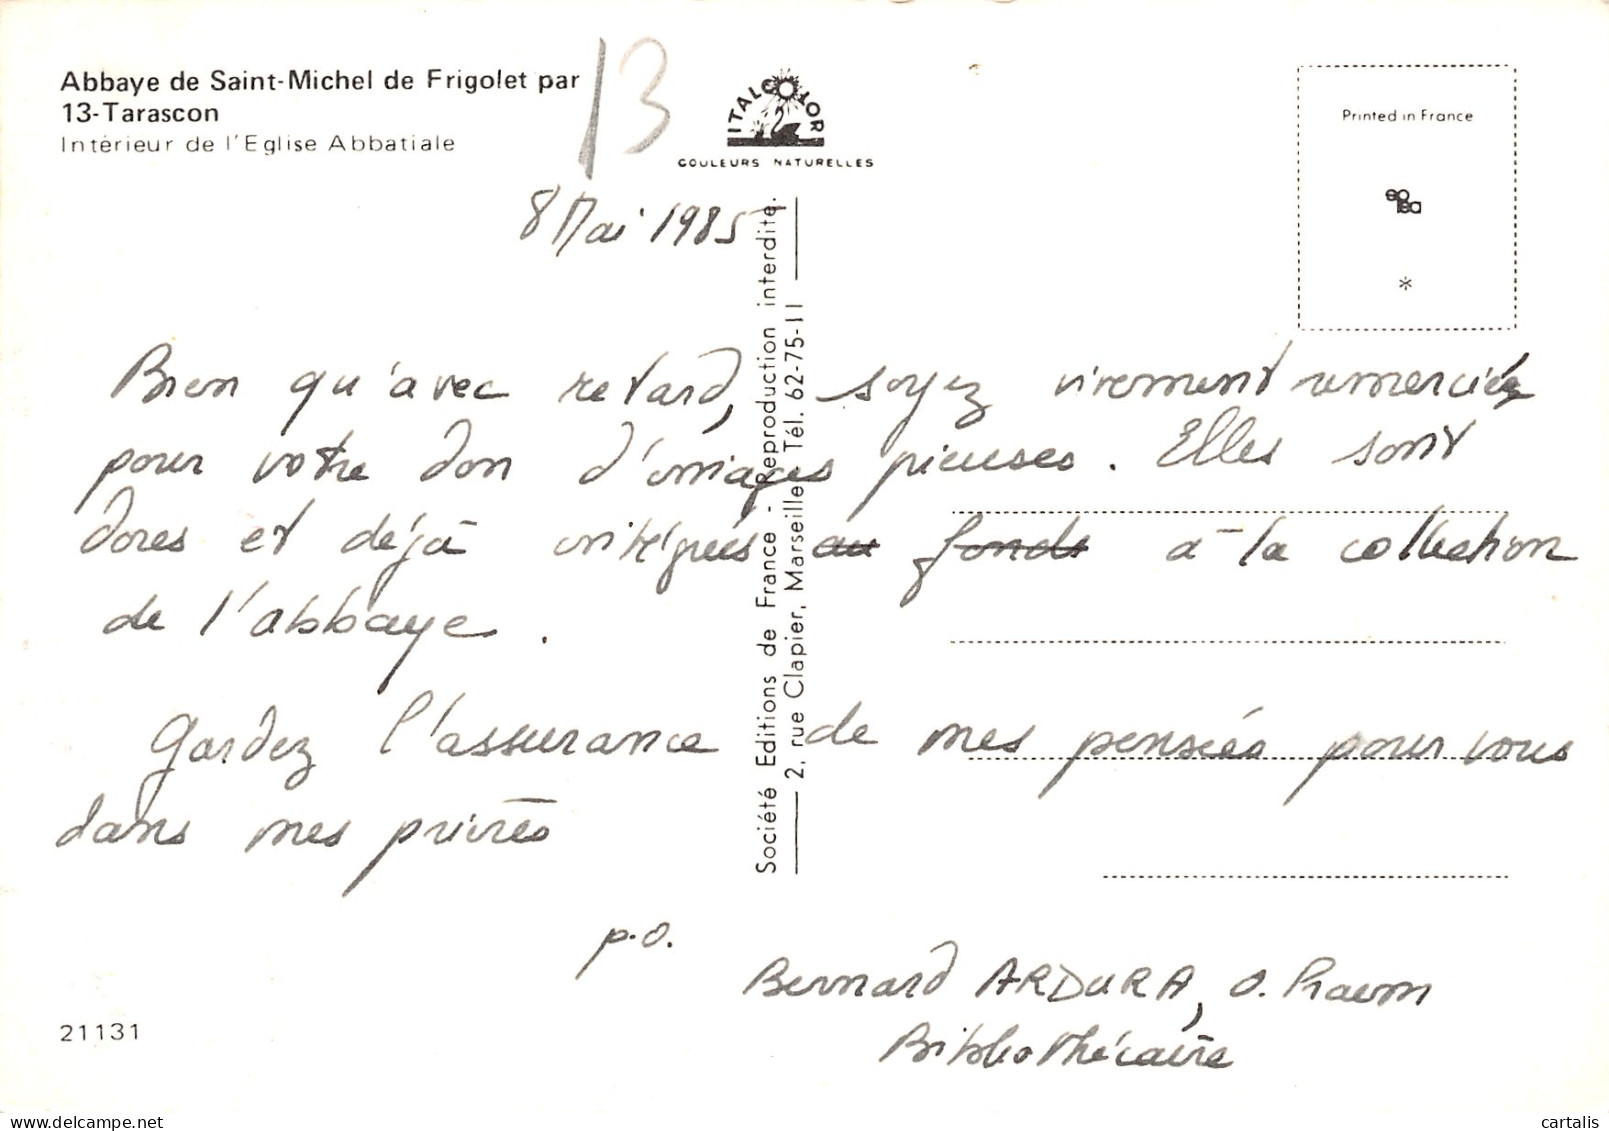 Abbaye de Saint-Michel de Frigolet par
13-Tarascon
Intérieur de l'Eglise Abbatiale
13
ITALCOLOR
COULEURS NATURELLES
Printed in France
*
8 Mai 1985
Bien qu'avec retard, soyez vivement remerciée
pour votre don d'images pieuses. Elles sont
dores et déjà intégrées au fonds à la collection
de l'abbaye.
Gardez l'assurance de mes pensées pour vous
dans mes prières
p.o.
Bernard ARDURA, o. Praem
Bibliothécaire
21131
Société Editions de France - Reproduction interdite.
2, rue Clapier, Marseille Tél. 62-75-11
cartalis